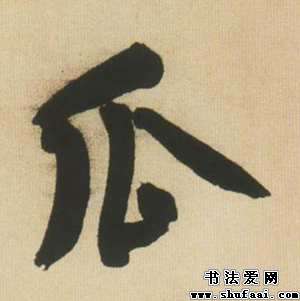 瓜
书法爱网
www.shufaai.com